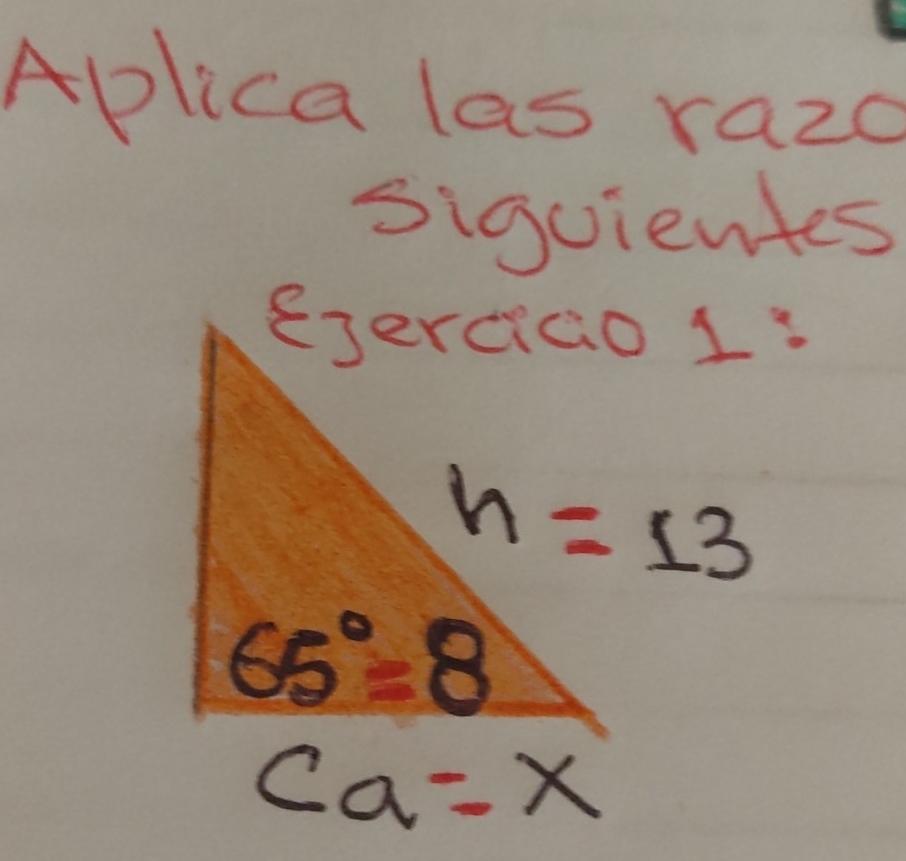 Aplica las razo
siguientes
Ejercicio 1:
h = 13
65° = 8
Ca = x